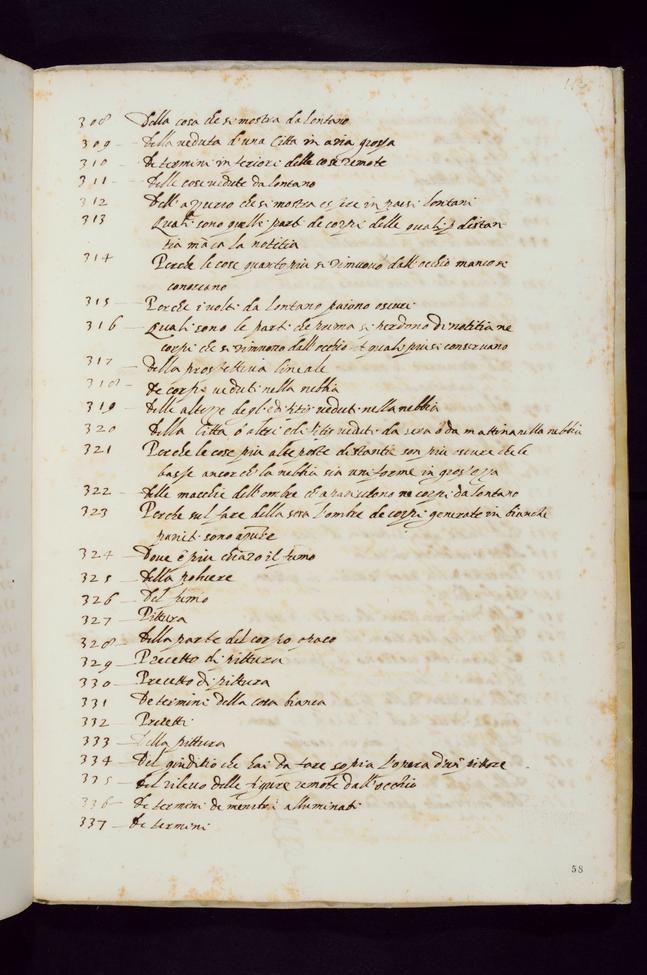 308 Della cosa che si mostra da lontano
309 Della veduta d'una Città in aria grossa
310 De termini inferiori delle cose remote
311 Delle cose vedute da lontano
312 Dell'azurro che si mostra essere in paesi lontani
313 Quali sono quelle parti de corpi delle quali p distan
tia māca la notitia
314 Perche le cose quanto piu si rimuovono dall'occhio manco si
conoscano
315 Perche i volti da lontano paiono oscuri
316 Quali sono le parti che prima si perdono di notitia ne
corpi che si rimuovono dall'occhio et quali piu si conservano
317 della prospettiva lineale
318 De corpi veduti nella nebbia
319 delle altezze degl'edifitii veduti nella nebbia
320 della Città ò altri edifitii veduti da sera ò da mattina nella nebbia
321 Perche le cose piu alte poste distante son piu oscure che le
basse ancor ch'la nebbia sia uniforme in grossezza
322 delle macchie dell'ombre ch'apariscono ne corpi da lontano
323 Perche sul fare della sera l'ombre de corpi generate in bianche
parieti sono azurre
324 Dove è piu chiaro il fumo
325 della polvere
326 Del fumo
327 Pittura
328 della parte del corpo opaco
329 Precetto di pittura
330 Precetto di pittura
331 De termini della cosa bianca
332 Precetti
333 della pittura
334 Del giuditio che hai da fare sopra l'opera d'un pittore
335 del rilevo delle figure remote dall'occhio
336 De termini de membri alluminati
337 De termini
58